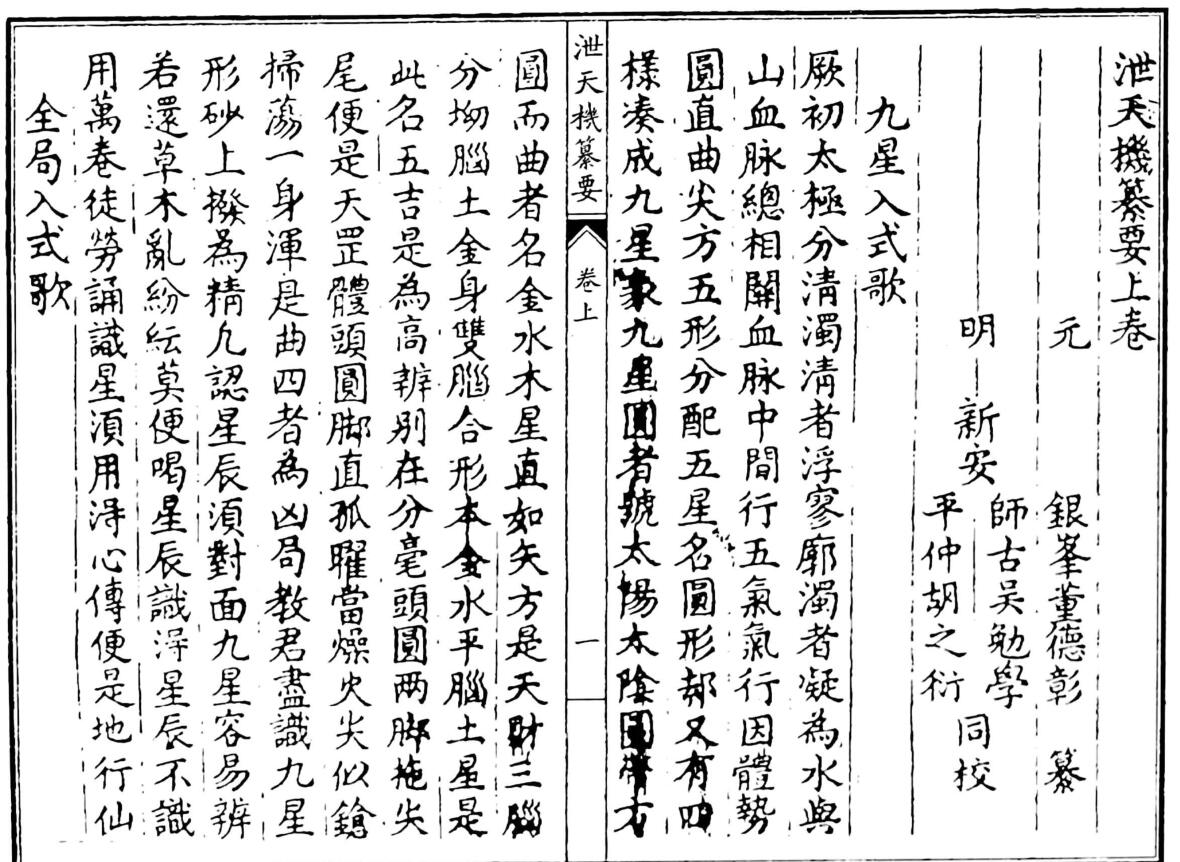 泄天機纂要上卷
元　銀峯董德彰　纂
明　新安　師古吳勉學
平仲胡之衍　同校
九星入式歌
厥初太極分清濁清者浮寥廓濁者凝為水與
山血脉總相關血脉中間行五氣氣行因體勢
圓直曲尖方五形分配五星名圓形却又有四
樣凑成九星象九星圓者號太陽太陰圓帶方
泄天機纂要　卷上　一
圓而曲者名金水木星直如矢方是天財三腦
分坳腦土金身雙腦合形本金水平腦土星是
此名五吉是為高辨别在分毫頭圓兩脚拖尖
尾便是天罡體頭圓脚直孤曜當燥火尖似鎗
掃蕩一身渾是曲四者為凶局教君盡識九星
形砂上撥為精凢認星辰須對面九星容易辨
若還草木亂紛紜莫便喝星辰識淂星辰不識
用萬卷徒勞誦識星湏用淂心傳便是地行仙
全局入式歌